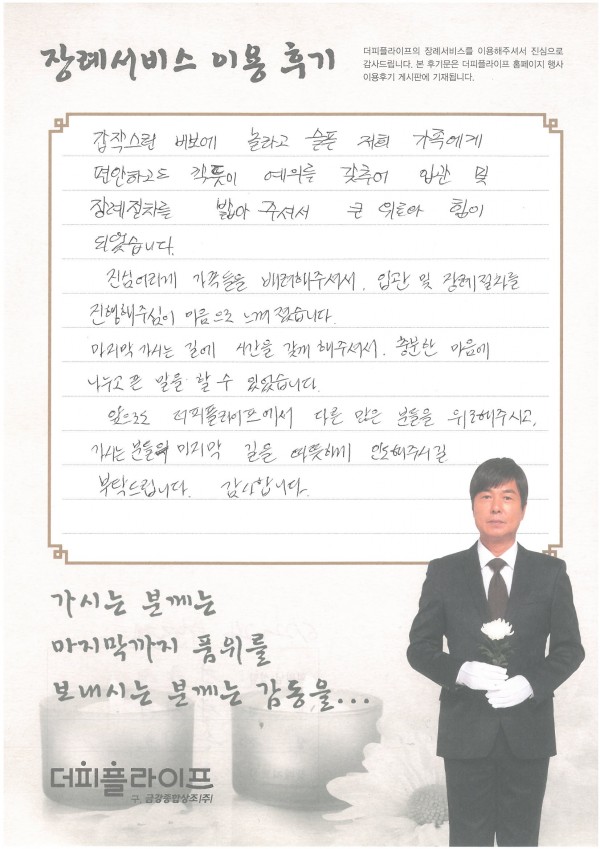 장례서비스 이용 후기
더피플라이프의 장례서비스를 이용해주셔서 진심으로
감사드립니다. 본 후기문은 더피플라이프 홈페이지 행사
이용후기 게시판에 기재됩니다.
갑작스런 비보에 놀라고 슬픈 저희 가족에게
편안하고도 깍듯이 예의를 갖추어 입관 및
장례절차를 밟아 주셔서 큰 위로와 힘이
되었습니다.
진심어리게 가족들을 배려해주셔서, 입관 및 장례절차를
진행해주심이 마음으로 느껴졌습니다.
마지막 가시는 길에 시간을 갖게 해주셔서, 충분한 마음에
나누고픈 말을 할 수 있었습니다.
앞으로도 더피플라이프에서 다른 많은 분들을 위로해주시고,
가시는 분들의 마지막 길을 따뜻하게 인도해주시길
부탁드립니다. 감사합니다.
가시는 분께는
마지막까지 품위를
보내시는 분께는 감동을...
더피플라이프
구. 금강종합상조(주)